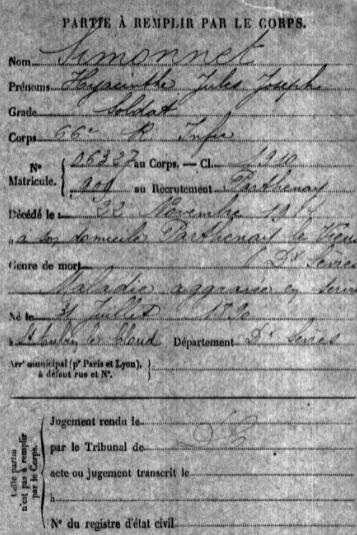 PARTIE À REMPLIR PAR LE CORPS.
Nom Simonnet
Prénoms Hyacinthe Jules Joseph
Grade Soldat
Corps 66e R Infie
N° Matricule. 06327 au Corps. — Cl. 1910
900 au Recrutement Parthenay
Décédé le 22 Novembre
à son domicile Parthenay la
Genre de mort (Dx Sèvres
Maladie aggravée en
Né le Juillet
à St Aubin le Cloud Département Dx Sèvres
Arrt municipal (pr Paris et Lyon), à défaut rue et N°.
Cette partie n'est pas à remplir par le Corps.
Jugement rendu le
par le Tribunal de
acte ou jugement transcrit le
à
N° du registre d'état civil